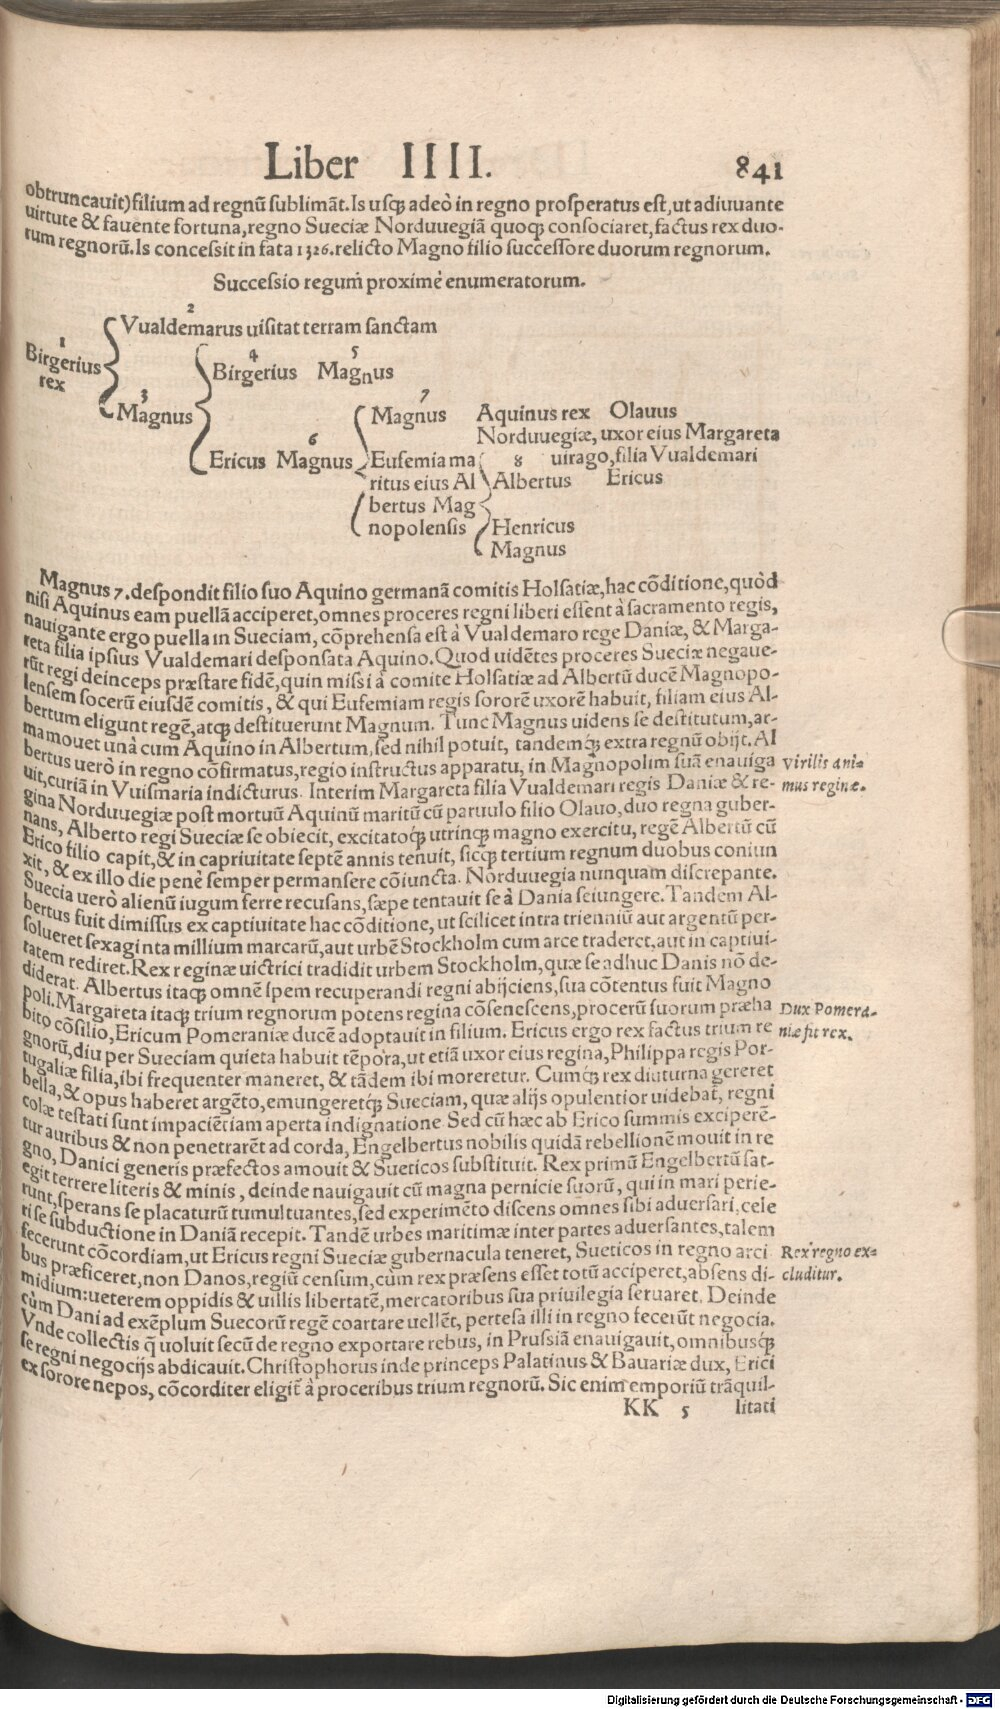 Liber IIII. 841
obtruncauit) filium ad regnũ sublimãt. Is usq; adeò in regno prosperatus est, ut adiuuante
uirtute & fauente fortuna, regno Sueciæ Norduuegiã quoq; consociaret, factus rex duo-
rum regnorũ. Is concessit in fata 1326. relicto Magno filio successore duorum regnorum.
Successio regum proximè enumeratorum.
2
Vualdemarus uisitat terram sanctam
1 4 5
Birgerius Birgerius Magnus
rex
3 7
Magnus Magnus Aquinus rex Olauus
Norduuegiæ, uxor eius Margareta
6
Ericus Magnus Eufemia ma 8 uirago, filia Vualdemari
ritus eius Al Albertus Ericus
bertus Mag
nopolensis Henricus
Magnus
Magnus 7. despondit filio suo Aquino germanã comitis Holsatiæ, hac cõditione, quòd
nisi Aquinus eam puellã acciperet, omnes proceres regni liberi essent à sacramento regis,
nauigante ergo puella in Sueciam, cõprehensa est à Vualdemaro rege Daniæ, & Marga-
reta filia ipsius Vualdemari desponsata Aquino. Quod uidẽtes proceres Sueciæ negaue-
rũt regi deinceps præstare fidẽ, quin missi à comite Holsatiæ ad Albertũ ducẽ Magnopo-
lensem socerũ eiusdẽ comitis, & qui Eufemiam regis sororẽ uxorẽ habuit, filiam eius Al-
bertum eligunt regẽ, atq; destituerunt Magnum. Tunc Magnus uidens se destitutum, ar-
ma mouet unà cum Aquino in Albertum, sed nihil potuit, tandemq́; extra regnũ obijt. Al
bertus uerò in regno cõfirmatus, regio instructus apparatu, in Magnopolim suã enauiga
Virilis ani-
uit, curiã in Vuismaria indicturus. Interim Margareta filia Vualdemari regis Daniæ & re-
mus reginæ.
gina Norduuegiæ post mortuũ Aquinũ maritũ cũ paruulo filio Olauo, duo regna guber-
nans, Alberto regi Sueciæ se obiecit, excitatoq́; utrinq; magno exercitu, regẽ Albertũ cũ
Erico filio capit, & in capriuitate septẽ annis tenuit, sicq; tertium regnum duobus coniun
xit, & ex illo die penè semper permansere cõiuncta. Norduuegia nunquam discrepante.
Suecia uerò alienũ iugum ferre recusans, sæpe tentauit se à Dania seiungere. Tandem Al-
bertus fuit dimissus ex captiuitate hac cõditione, ut scilicet intra trienniũ aut argentũ per-
solueret sexaginta millium marcarũ, aut urbẽ Stockholm cum arce traderet, aut in captiui-
tatem rediret. Rex reginæ uictrici tradidit urbem Stockholm, quæ se adhuc Danis nõ de-
diderat. Albertus itaq; omnẽ spem recuperandi regni abijciens, sua cõtentus fuit Magno
poli. Margareta itaq; trium regnorum potens regina cõsenescens, procerũ suorum præha
Dux Pomera-
bito cõsilio, Ericum Pomeraniæ ducẽ adoptauit in filium. Ericus ergo rex factus trium re
niæ fit rex.
gnorũ, diu per Sueciam quieta habuit tẽpora, ut etiã uxor eius regina, Philippa regis Por-
tugaliæ filia, ibi frequenter maneret, & tãdem ibi moreretur. Cumq́; rex diuturna gereret
bella, & opus haberet argẽto, emungeretq́; Sueciam, quæ alijs opulentior uidebat, regni
colæ testati sunt impaciẽtiam aperta indignatione. Sed cũ hæc ab Erico summis exciperẽ-
tur auribus & non penetrarẽt ad corda, Engelbertus nobilis quidã rebellionẽ mouit in re
gno, Danici generis præfectos amouit & Sueticos substituit. Rex primũ Engelbertũ sat-
egit terrere literis & minis, deinde nauigauit cũ magna pernicie suorũ, qui in mari perie-
runt, sperans se placaturũ tumultuantes, sed experimẽto discens omnes sibi aduersari, cele
ri se subductione in Daniã recepit. Tandẽ urbes maritimæ inter partes aduersantes, talem
fecerunt cõcordiam, ut Ericus regni Sueciæ gubernacula teneret, Sueticos in regno arci
Rex regno ex-
bus præficeret, non Danos, regiũ censum, cùm rex præsens esset totũ acciperet, absens di-
cluditur.
midium: ueterem oppidis & uillis libertatẽ, mercatoribus sua priuilegia seruaret. Deinde
cùm Dani ad exẽplum Suecorũ regẽ coartare uellẽt, pertesa illi in regno fecerũt negocia.
Vnde collectis q̃ uoluit secũ de regno exportare rebus, in Prussiã enauigauit, omnibusq́;
se regni negocijs abdicauit. Christophorus inde princeps Palatinus & Bauariæ dux, Erici
ex sorore nepos, cõcorditer eligit̃ à proceribus trium regnorũ. Sic enim emporiũ trãquil-
KK 5 litati
Digitalisierung gefördert durch die Deutsche Forschungsgemeinschaft - DFG